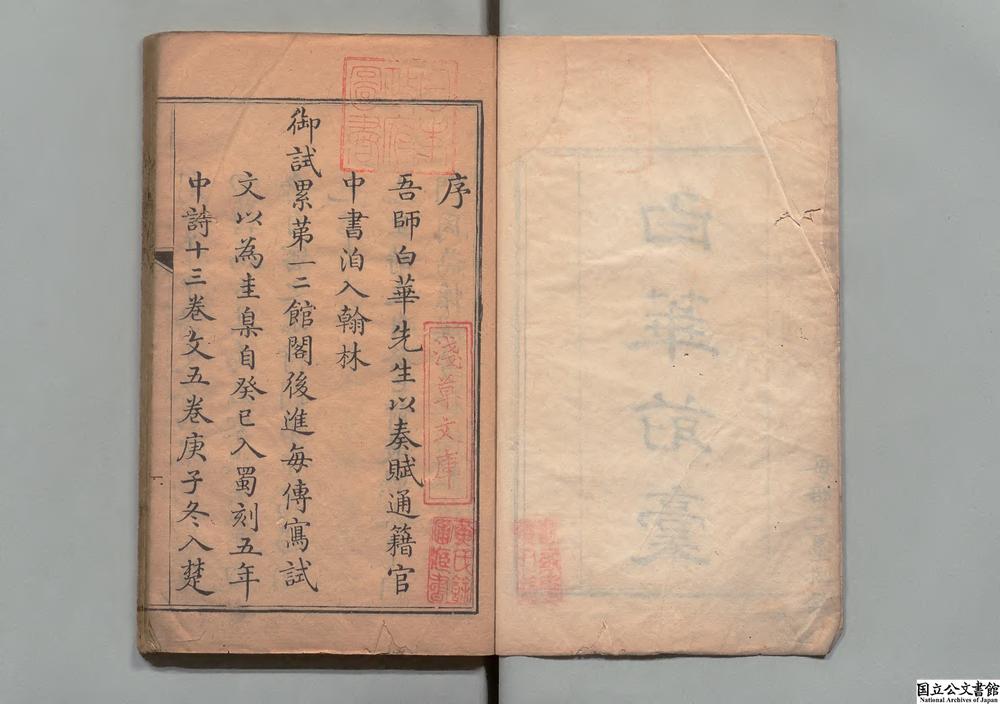 白華前藁
序
吾師白華先生以奏賦通籍官
中書洎入翰林
御試累苐一二館閣後進每傳寫試
文以為圭臬自癸巳入蜀刻五年
中詩十三卷文五卷庚子冬入楚
日本
政府
圖書
淺草文庫
国立公文書館
National Archives of Japan